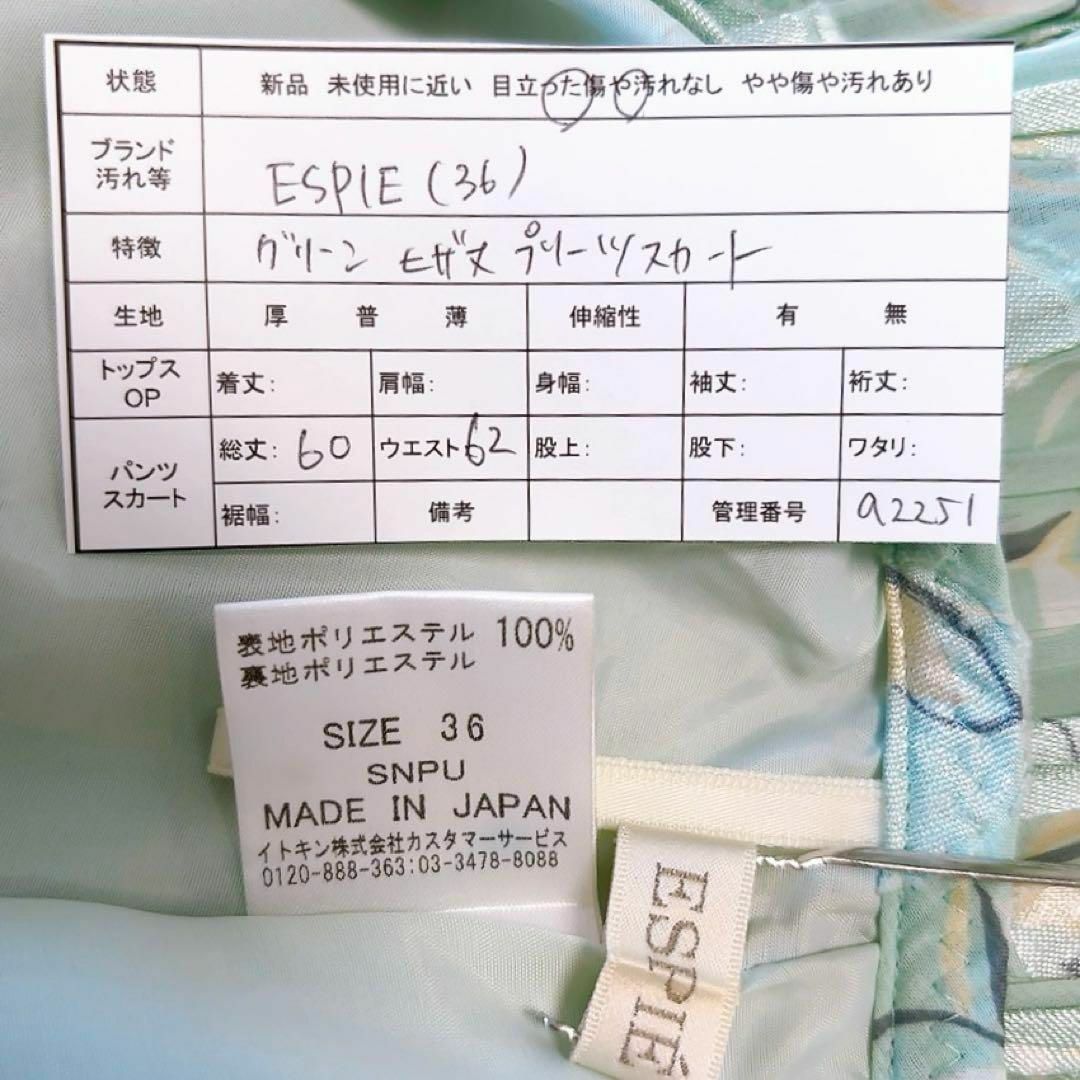 状態 新品 未使用に近い 目立った傷や汚れなし やや傷や汚れあり
ブランド
汚れ等 ESPIE (36)
特徴 グリーン ヒザ丈 プリーツスカート
生地 厚 普 薄 伸縮性 有 無
トップス
OP 着丈: 肩幅: 身幅: 袖丈: 裄丈:
パンツ
スカート 総丈: 60 ウエスト 62 股上: 股下: ワタリ:
裾幅: 備考 管理番号 a2251
表地ポリエステル 100%
裏地ポリエステル
SIZE 36
SNPU
MADE IN JAPAN
イトキン株式会社カスタマーサービス
0120-888-363:03-3478-8088
ESPIE
ESPIÉ